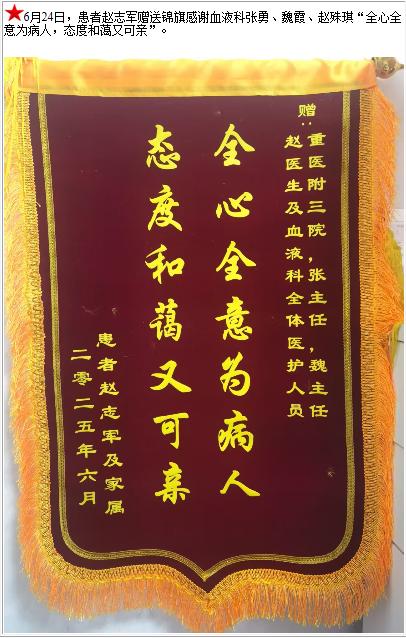 ★6月24日，患者赵志军赠送锦旗感谢血液科张勇、魏霞、赵殊琪“全心全
意为病人，态度和蔼又可亲”。
赠：
重医附三院，张主任，魏主任
赵医生及血液科全体医护人员
全心全意为病人
态度和蔼又可亲
患者赵志军及家属
二零二五年六月